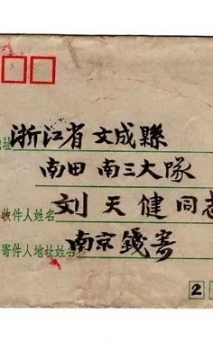 址 浙江省文成縣
南田南三大隊
收件人姓名 刘天健同志
寄件人地址姓名 南京錢寄
2